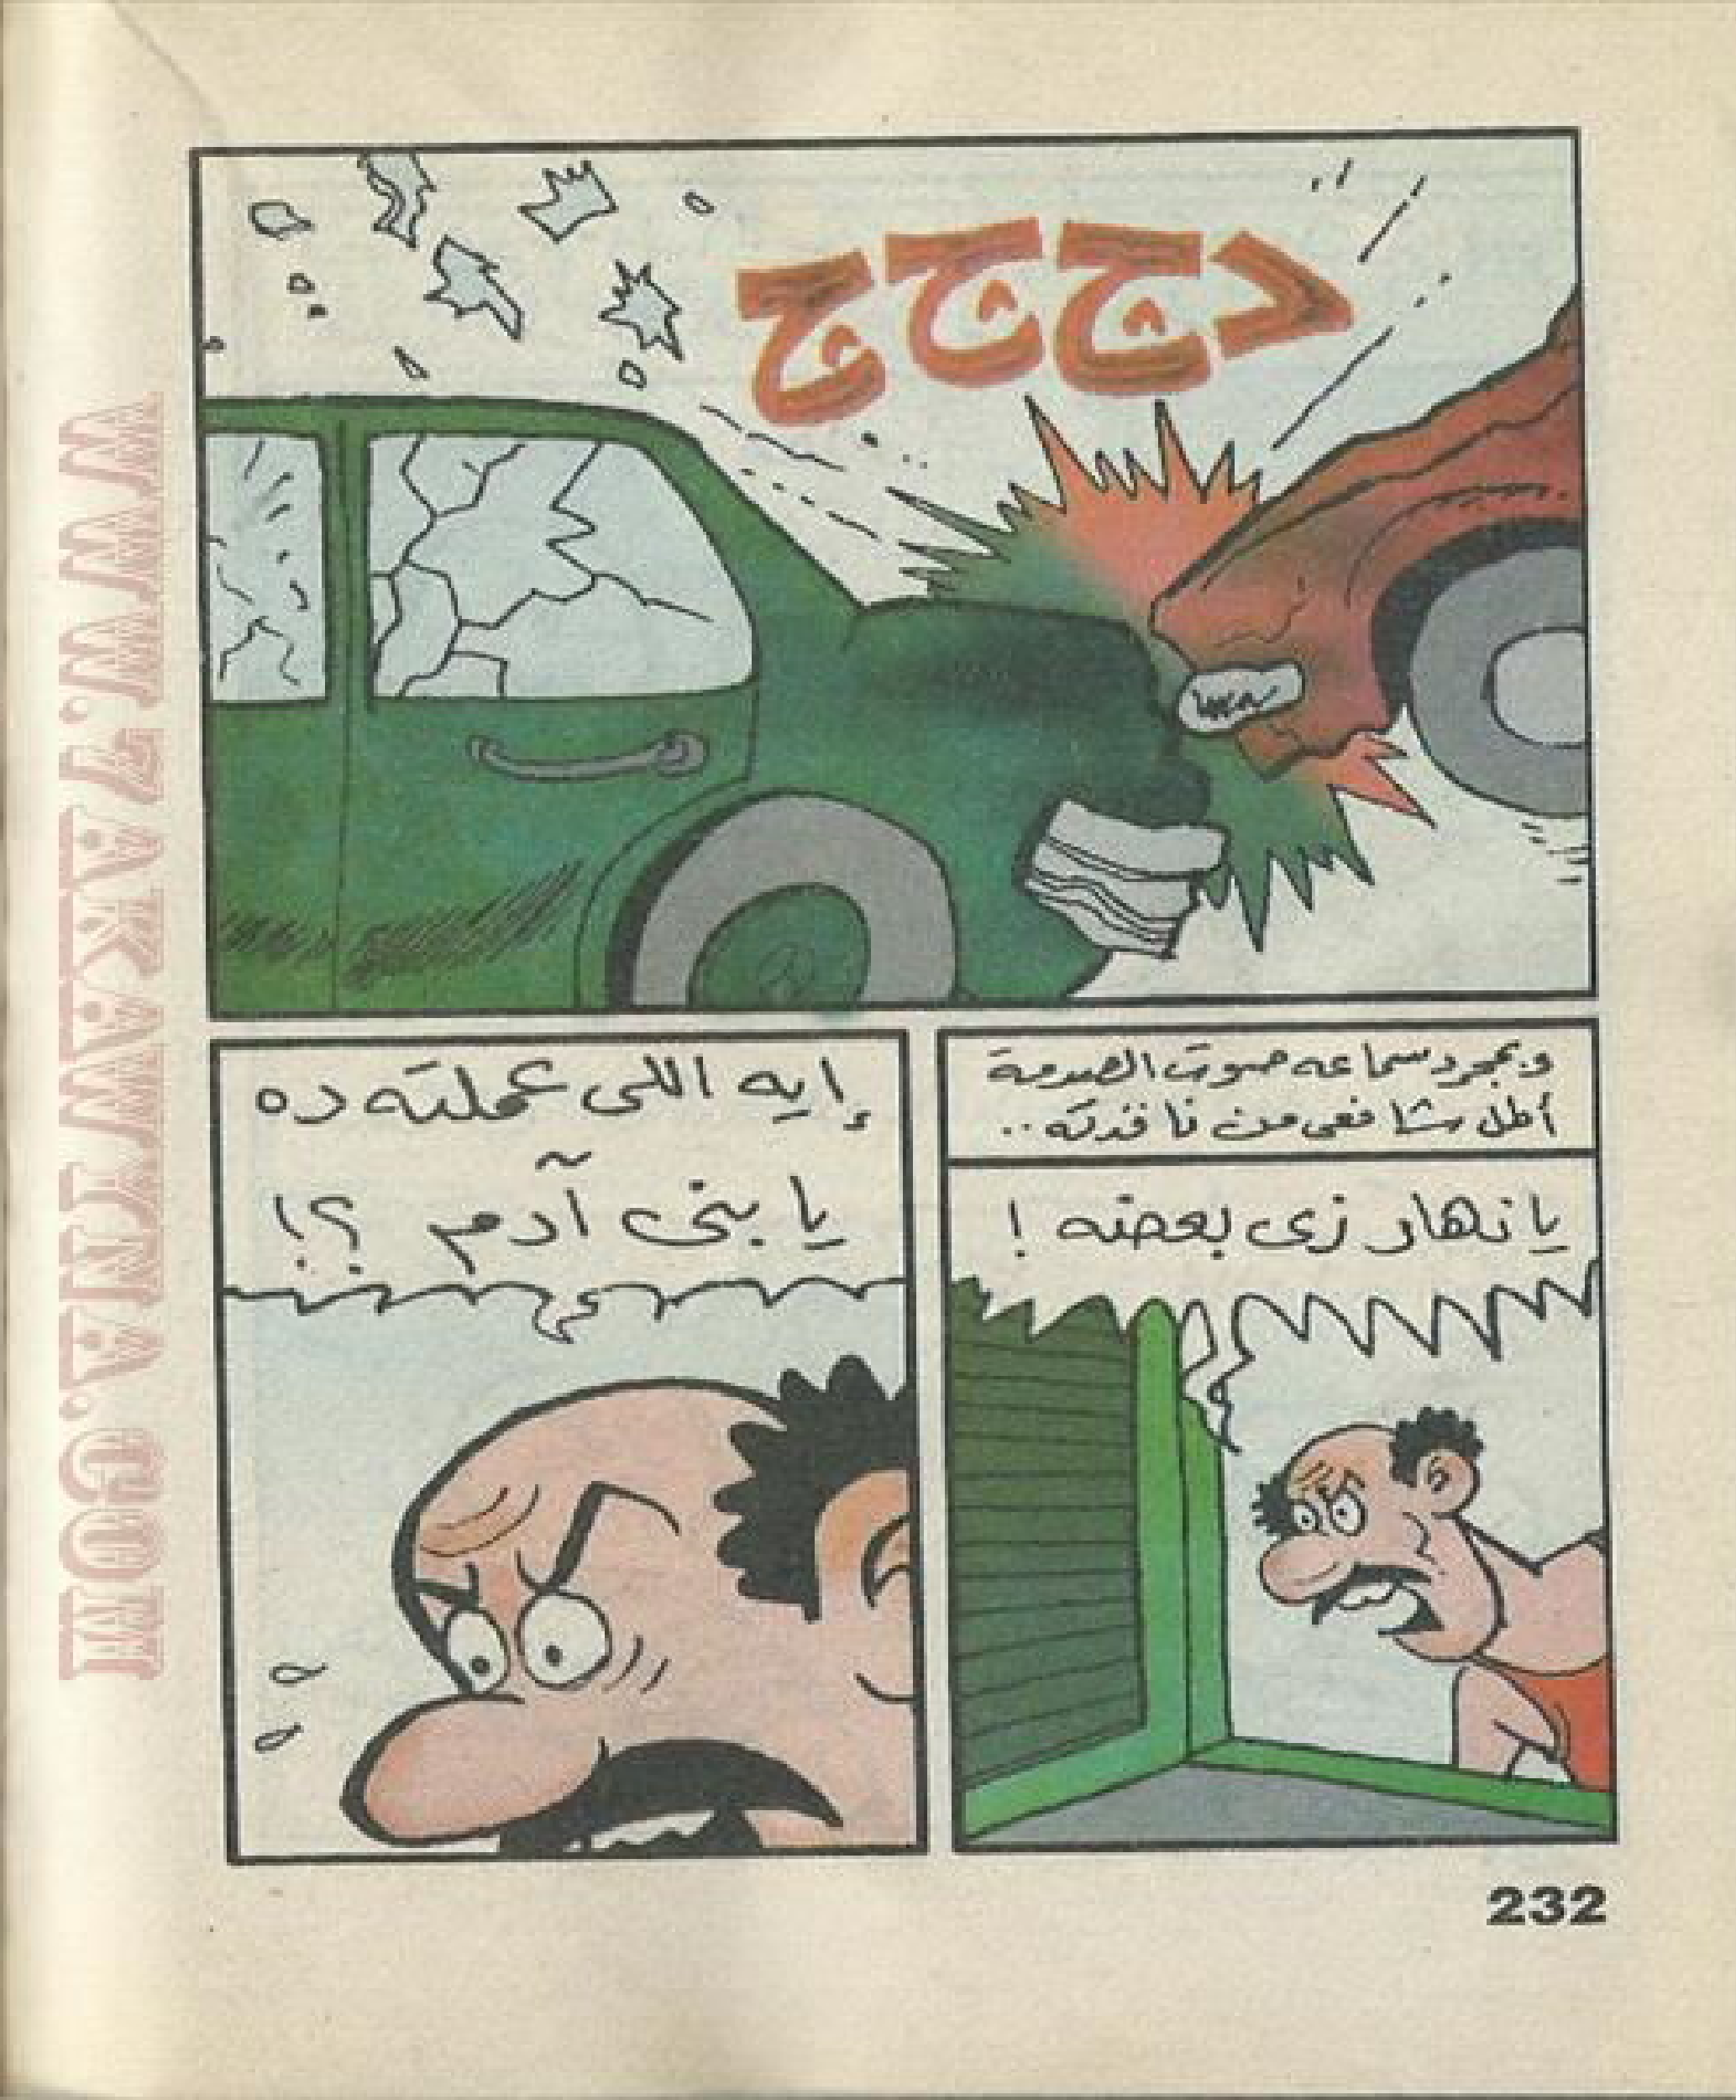 دججج
وبمجرد سماعه صوت الصدمة
أطل شافعى من نافذته ..
يا نهار زى بعضه !
إيه اللى عملته ده
يا بنى آدم ؟!
232
WWW.7AKAWITNA.COM